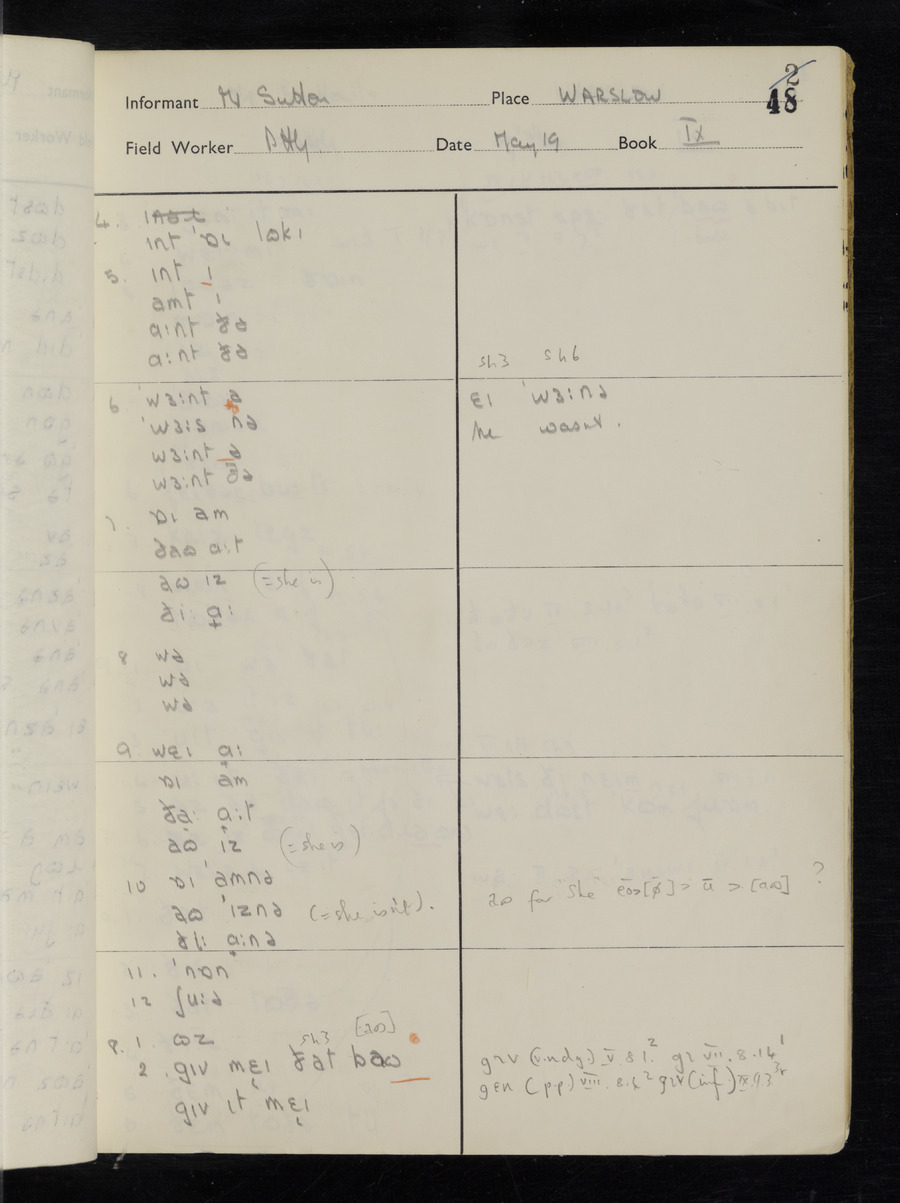 2
48
Informant Mr Sutton Place WARSLOW
Field Worker Date May 19 Book IX
4.
ɪnt ˈɒɪ lɷkɪ
5. ɪnt ɪ
amt ɪ
aːɪnt ðə
aːɪnt ðə
sh3 sh6
6 ˈwɜːɪnt ə
ˈwɜːs nə
wɜːnt ə
wɜːnt ðə
ɛɪ ˈwɜːnə
he wasnt.
7. ɒɪ am
ðaɷ aːt
aɷ ɪz (= she is)
ðiː aː
8 wə
wə
wə
9 wɛɪ aː
ɒɪ am
ðaː aːt
aɷ ɪz (= she is)
10 ɒɪ ˈamnə
aɷ ˈɪznə (= she isn't).
ðiː aːnə
aɷ for she ēo>[ø̄]> ū > [aɷ] ?
11. ˈnɒn
12 ʃuːə
9. 1. ɷz sh3 [aɷ]
2. gɪv mɛɪ ðat baɷ
gɪv ɪt mɛɪ
gɪv (v.ndg.) V 8 1.² gɪ VII. 8. 14¹
gɛn (pp) VIII. 8.6² gɪv (inf) IX 9 3³ʳ